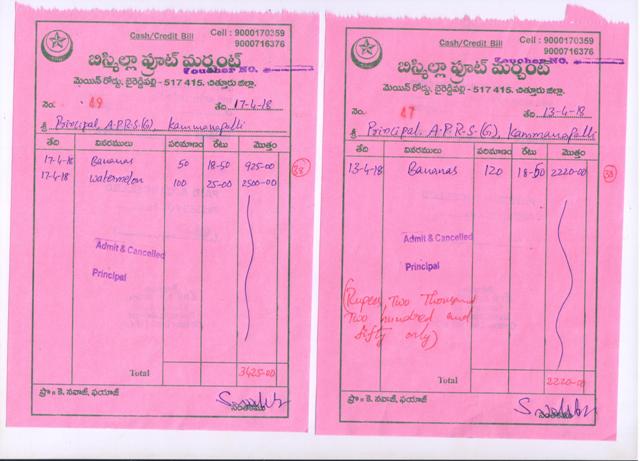 Cash/Credit Bill
Cell : 9000170359
9000716376
బిస్మిల్లా ఫ్రూట్ మర్చంట్
Voucher NO.
మెయిన్ రోడ్డు, బైరెడ్డిపల్లి - 517 415. చిత్తూరు జిల్లా.
నెం. 49 తేది 17-4-18
శ్రీ Principal, A.P.R.S(G), Kammanapalli
తేది వివరములు పరిమాణం రేటు మొత్తం
17-4-18 Bananas 50 18-50 925-00
17-4-18 Watermelon 100 25-00 2500-00
Admit & Cancelled
Principal
Total 3425-00
ప్రొ॥ కె. నవాజ్, ఫయాజ్
సంతకము
Cash/Credit Bill
Cell : 9000170359
9000716376
బిస్మిల్లా ఫ్రూట్ మర్చంట్
Voucher NO.
మెయిన్ రోడ్డు, బైరెడ్డిపల్లి - 517 415. చిత్తూరు జిల్లా.
నెం. 47 తేది 13-4-18
శ్రీ Principal, A.P.R.S(G), Kammanapalli
తేది వివరములు పరిమాణం రేటు మొత్తం
13-4-18 Bananas 120 18-50 2220-00
Admit & Cancelled
Principal
(Rupees Two Thousand
Two hundred and
fifty only)
Total 2220-00
ప్రొ॥ కె. నవాజ్, ఫయాజ్
సంతకము